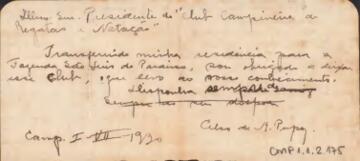 Illmo Snr. Presidente do "Club Campineiro de
Regatas e Natação"
Transferindo minha residencia para a
Fazenda São Luis do Paraiso, sou obrigado a deixar
esse Club, o que levo ao vosso conhecimento.
sempre
Sempre ao seu dispor
Camp. I VII 1920
Celso de
CMP 1.1.2.175